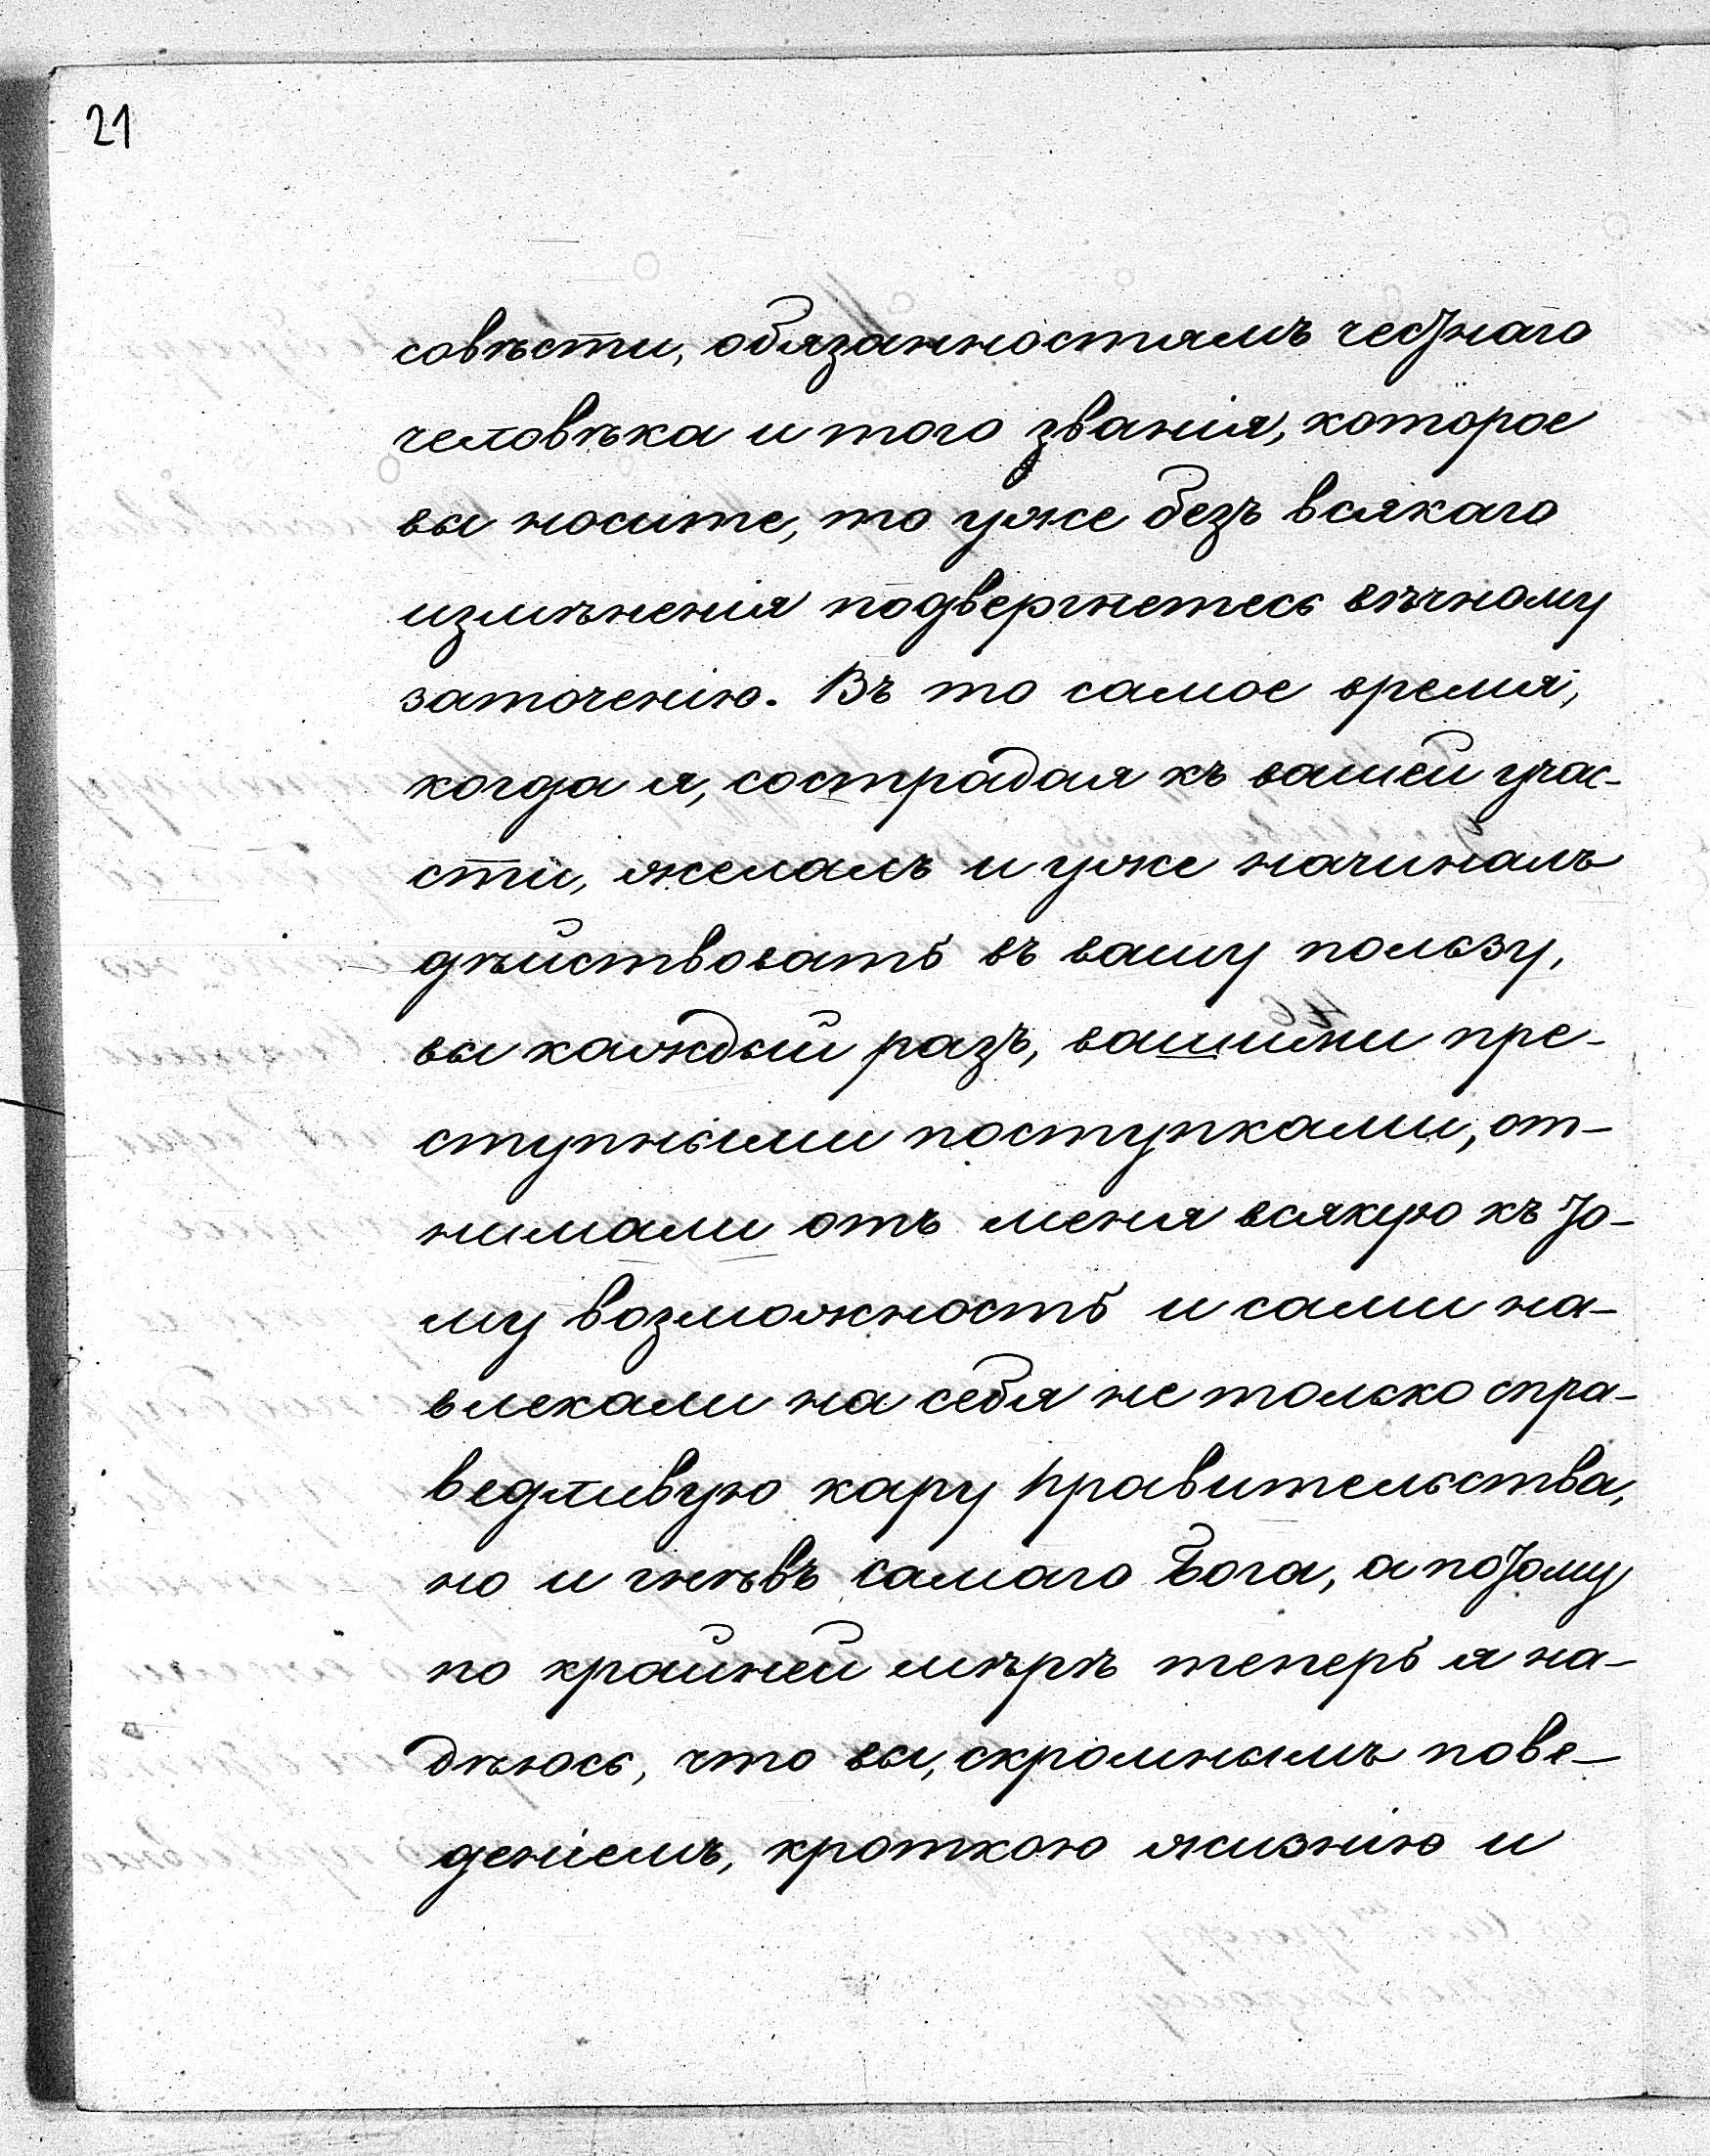 21
совѣсти, обязанностямъ честнаго
человѣка и того званія, которое
вы носите, то уже безъ всякаго
измѣненія подвергнетесь вѣчному
заточенію. Въ то самое время,
когда я, сострадая къ вашей учас-
сти, желалъ и уже начиналъ
дѣйствовать въ вашу пользу,
вы каждый разъ, вашими пре-
ступными поступками, от-
нимали отъ меня всякую къ то-
му возможность и сами на-
влекали на себя не только спра-
ведливую кару правительства,
но и гнѣвъ самаго Бога, а потому
по крайней мѣрѣ теперь я на-
дѣюсь, что вы, скромнымъ пове-
деніемъ, кроткою жизнію и